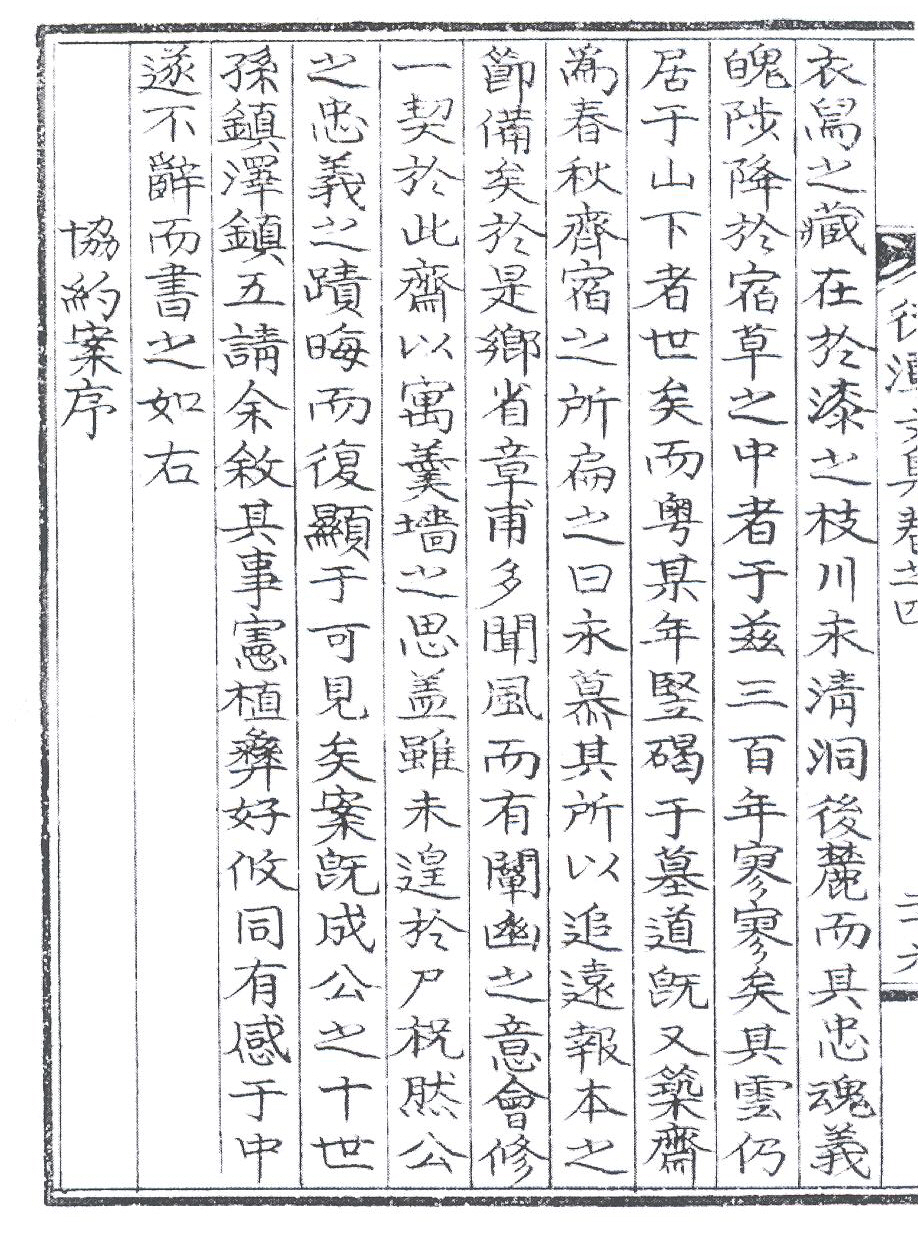 文集卷之四
衣舄之藏在於漆之枝川永清洞後麓而其忠魂義
魄陟降於宿草之中者于茲三百年寥寥矣其雲仍
居于山下者世矣而粤某年竪碣于墓道旣又築齋
爲春秋齊宿之所扁之曰永慕其所以追遠報本之
節備矣於是鄉省章甫多聞風而有闡幽之意會修
一契於此齋以寓羹墻之思盖雖未遑於尸祝然公
之忠義之蹟晦而復顯于可見矣案旣成公之十世
孫鎮澤鎮五請余敘其事憲植彛好攸同有感于中
遂不辭而書之如右
協約案序